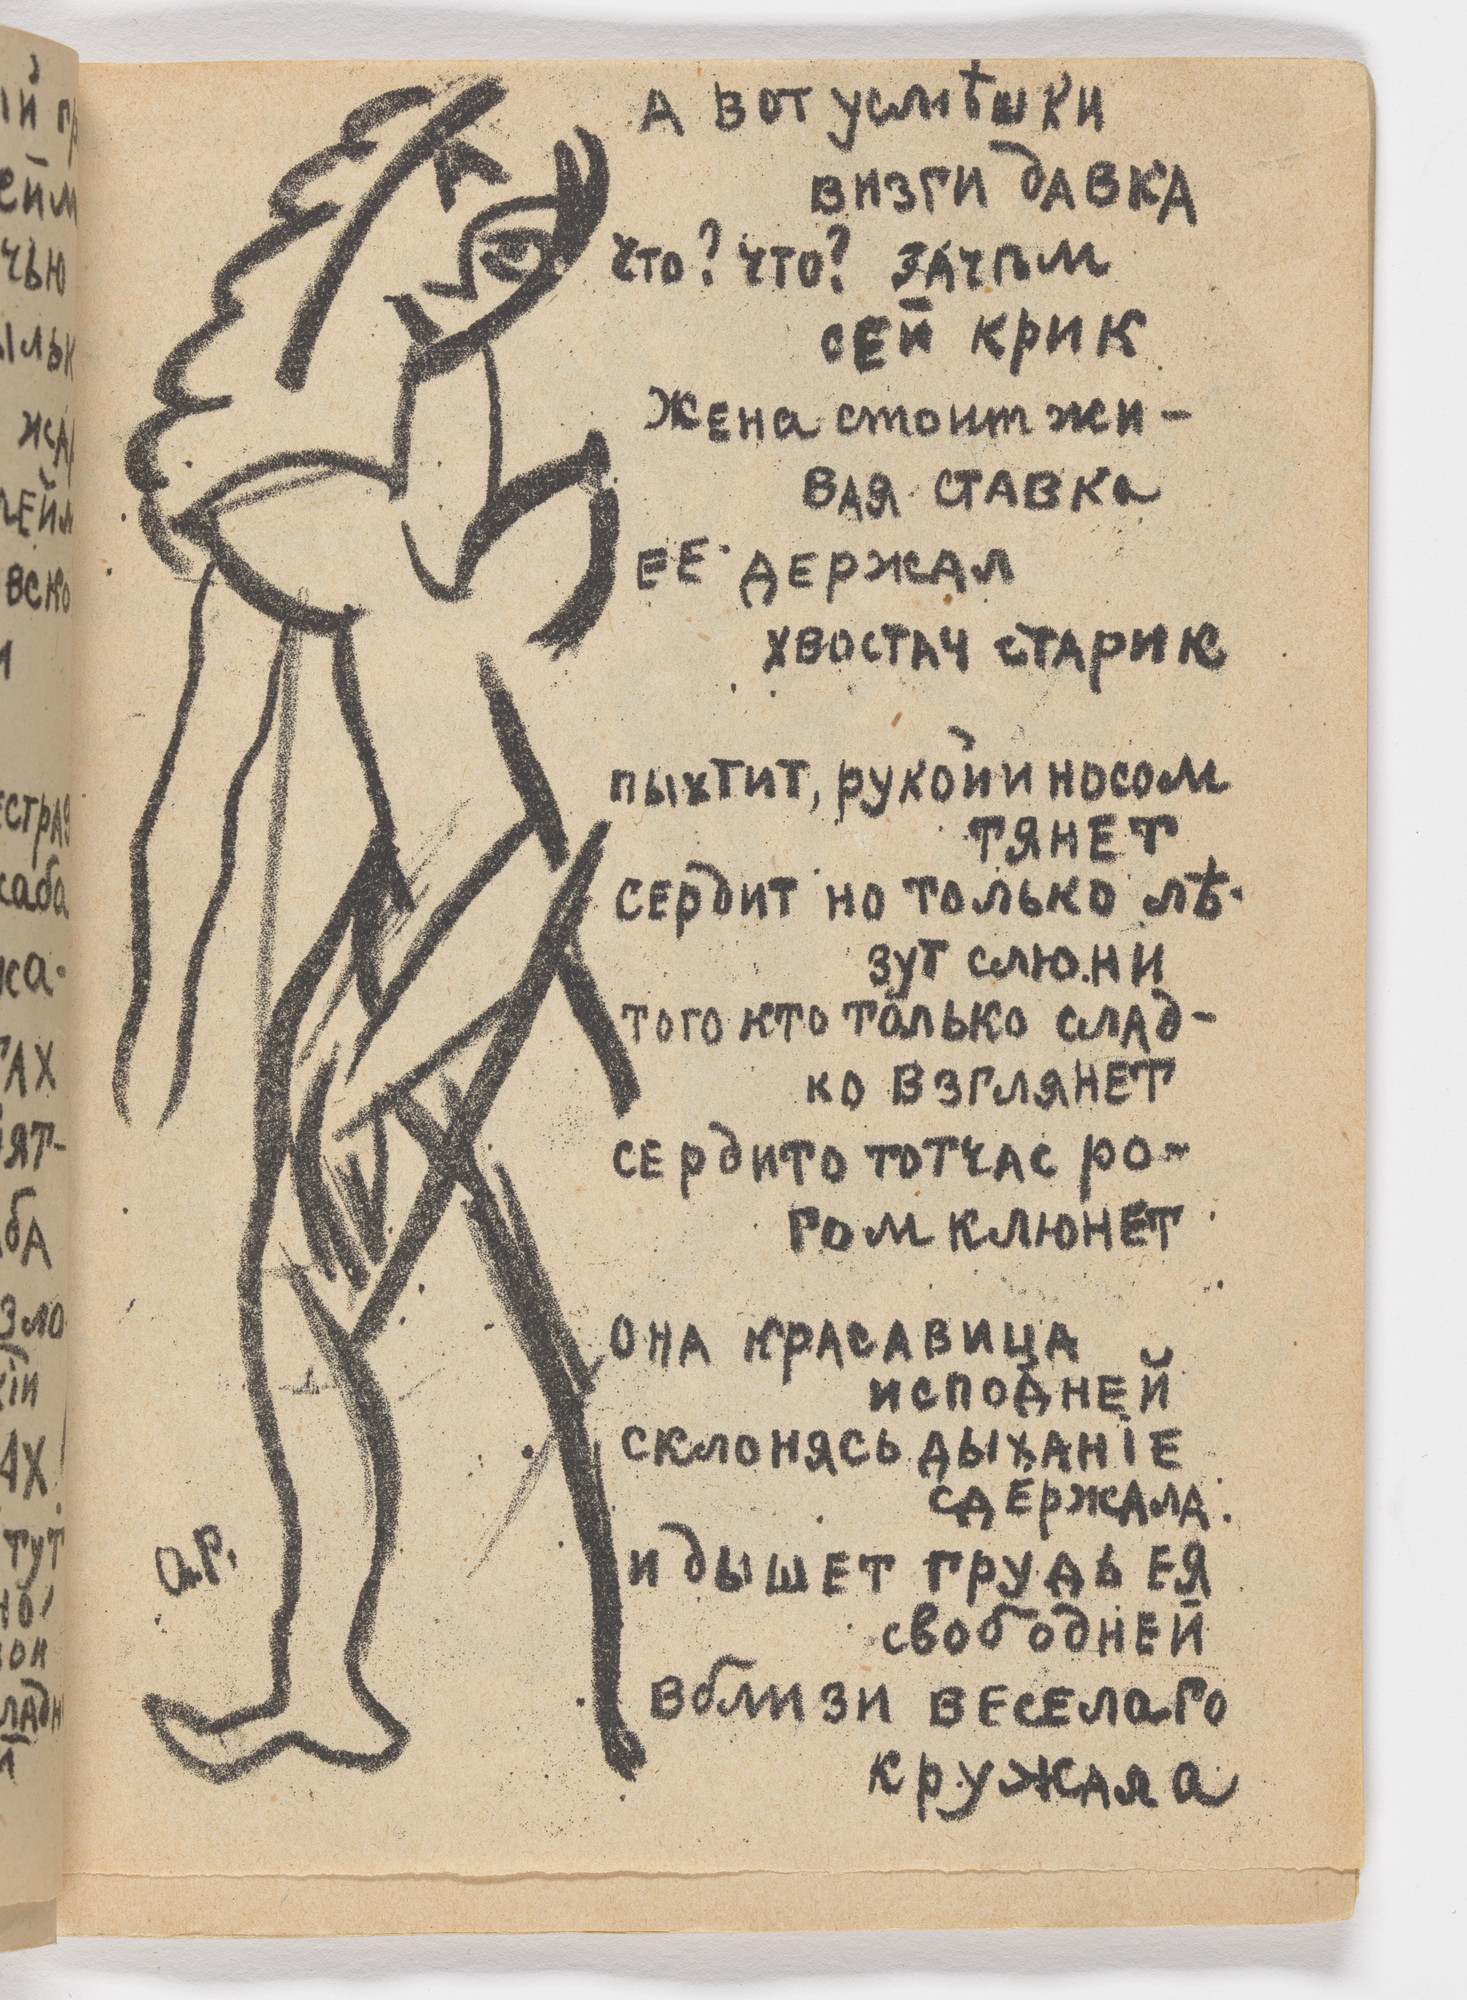 А вот усмѣшки
визги давка
что? что? зачѣм
сей крик
жена стоит жи-
вая ставка
ее держал
хвостач старик
пыхтит, рукой и носом
тянет
сердит но только лѣ-
зут слюни
того кто только слад-
ко взглянет
сердито тотчас ро-
гом клюнет
она красавица
исподней
склонясь дыханіе
сдержала.
и дышет грудь ея
свободней
вблизи веселаго
кружала
О.Р.